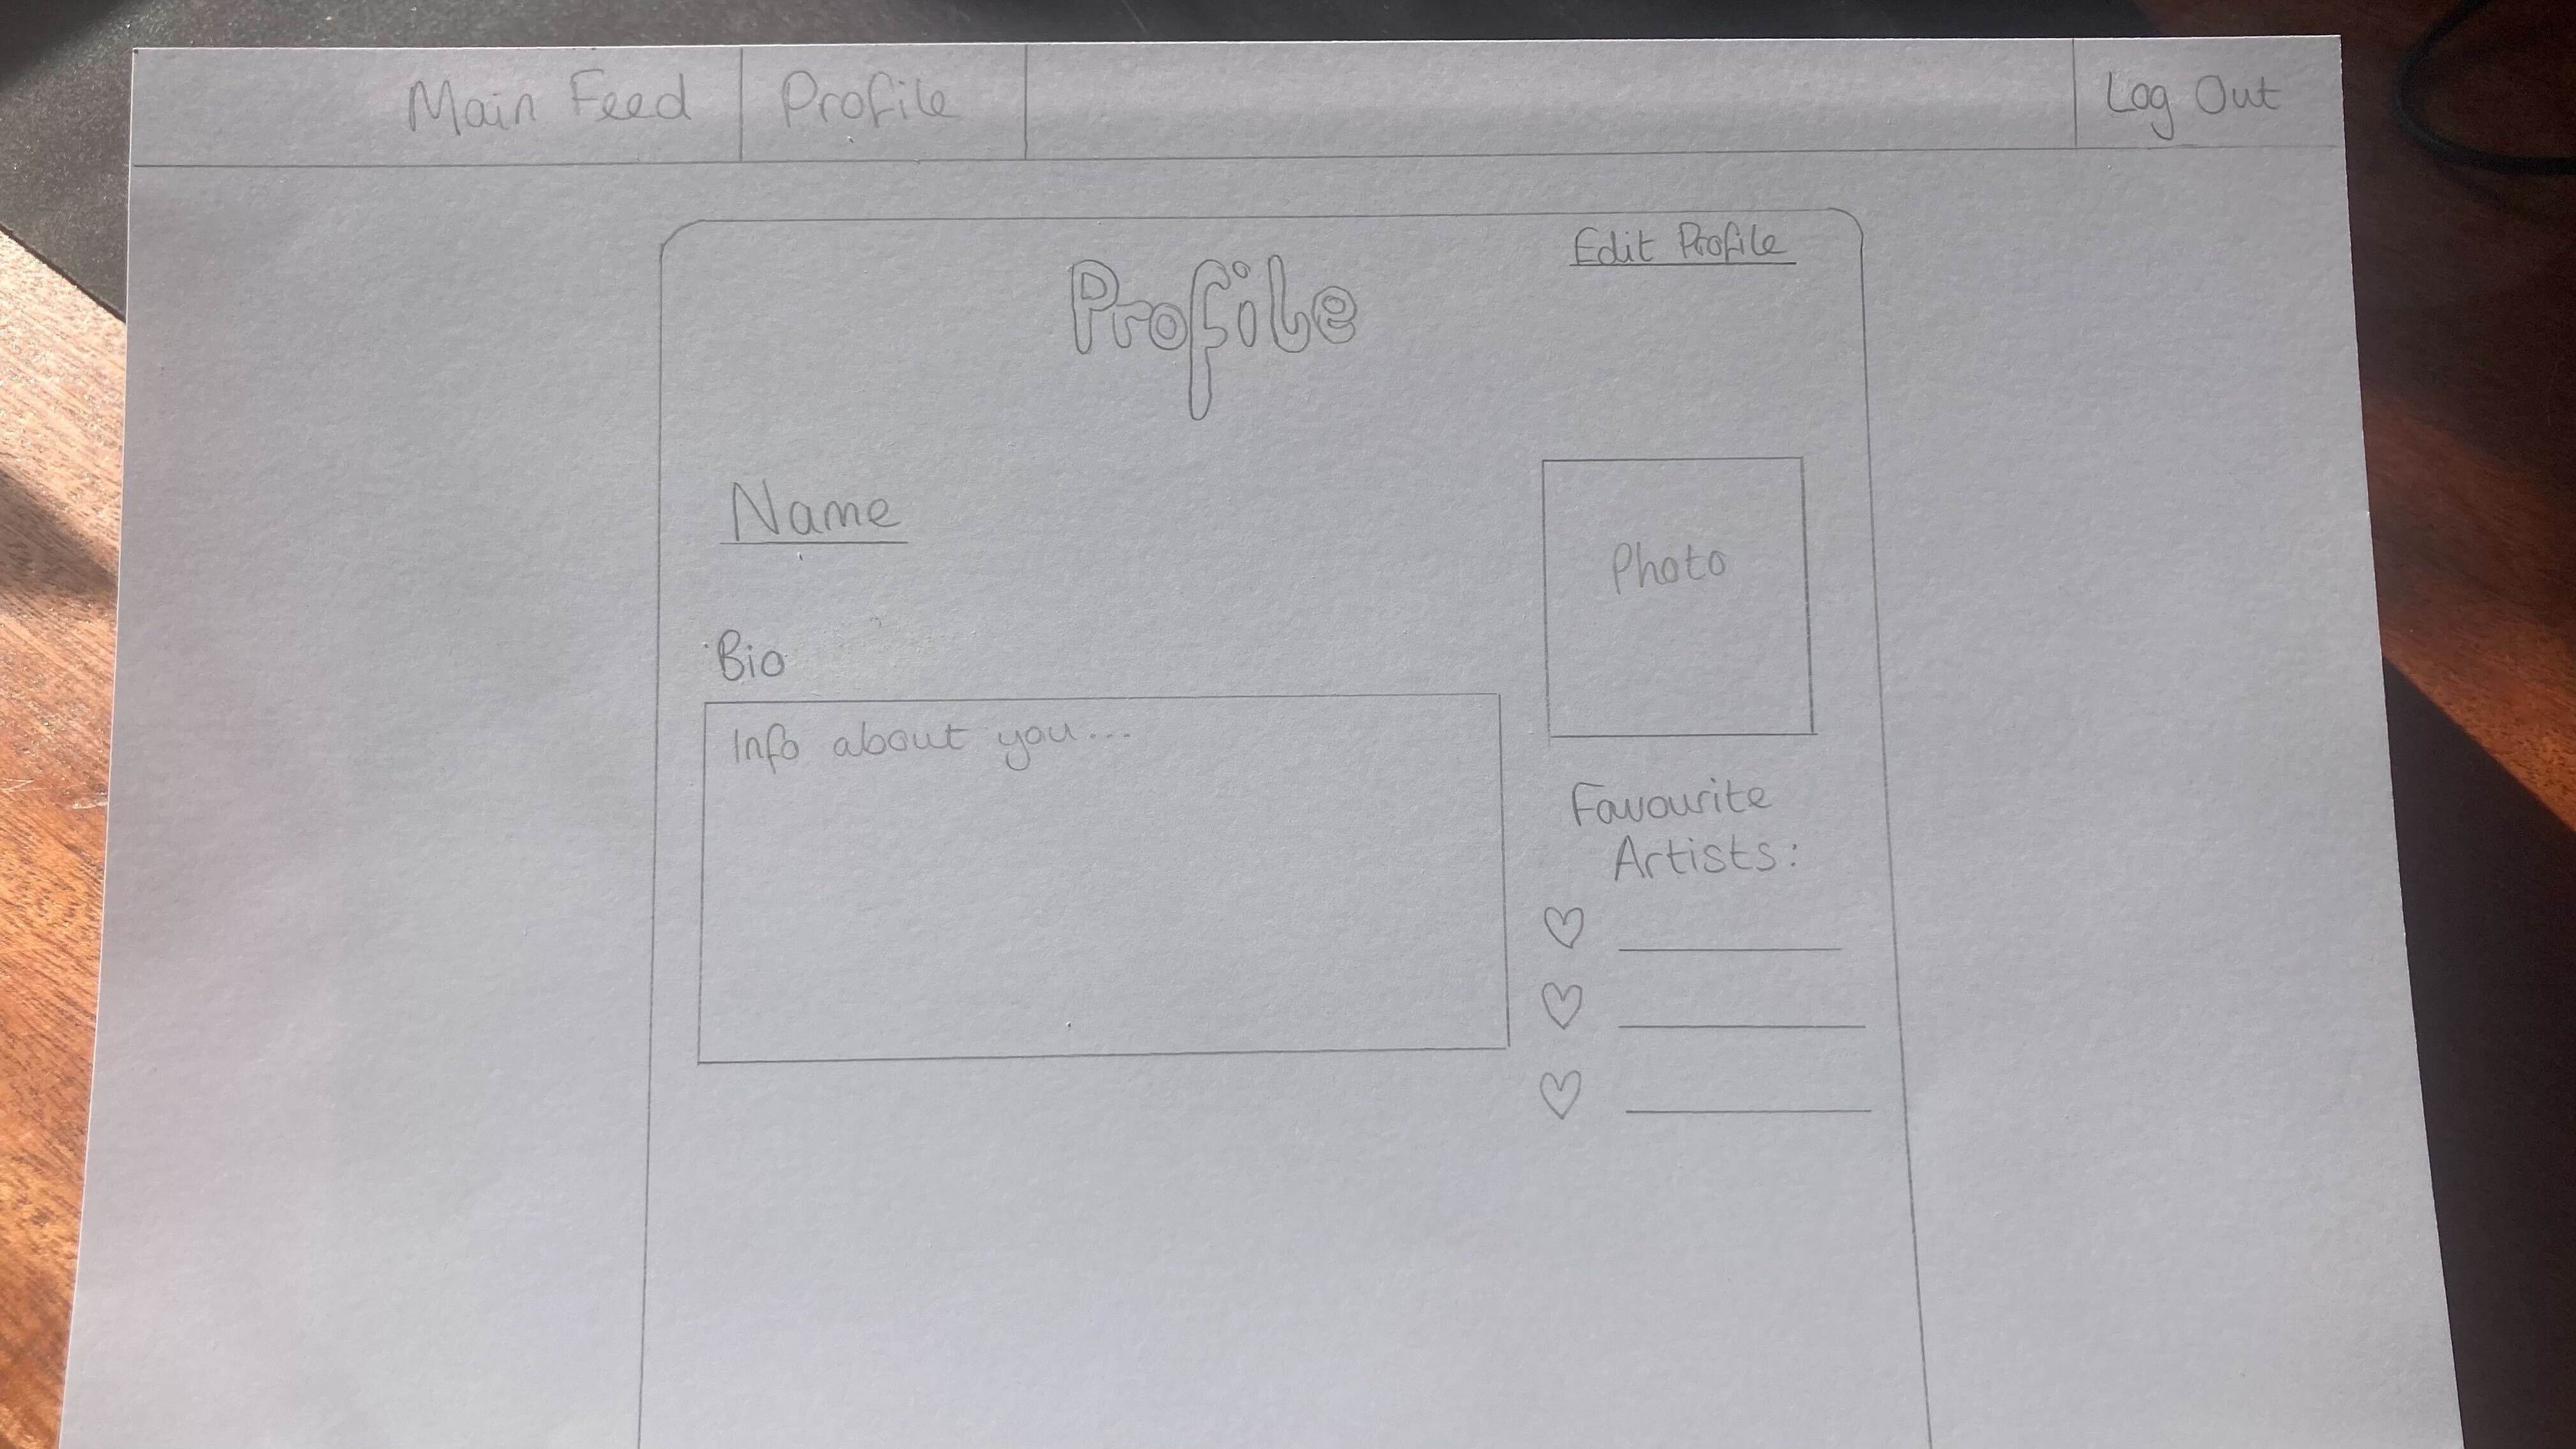 Main Feed
Profile
Log Out
Edit Profile
Profile
Name
Photo
Bio
Info about you...
Favourite
Artists: